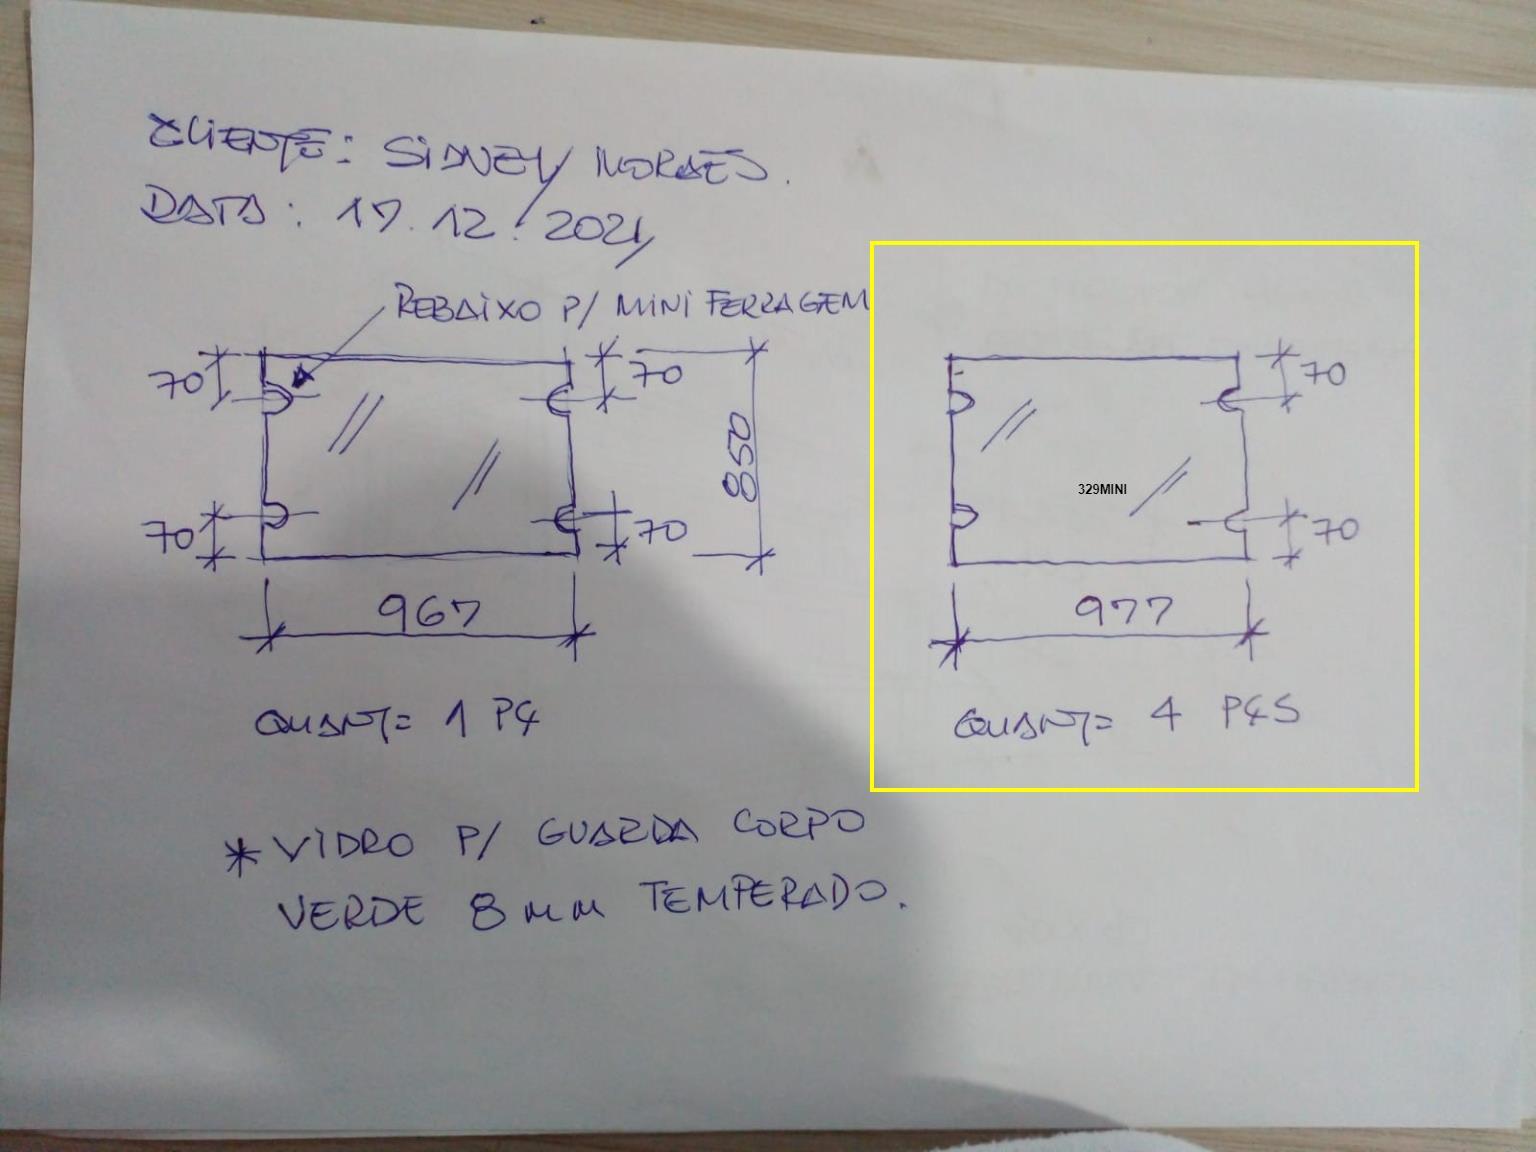 CLIENTE: SIDNEY MORAES.
DATA: 17.12.2021
REBAIXO P/ MINI FERRAGEM
70
70
70
850
329MINI
70
70
70
967
977
QUANT= 1 PÇ
QUANT= 4 PÇS
* VIDRO P/ GUARDA CORPO
VERDE 8 mm TEMPERADO.